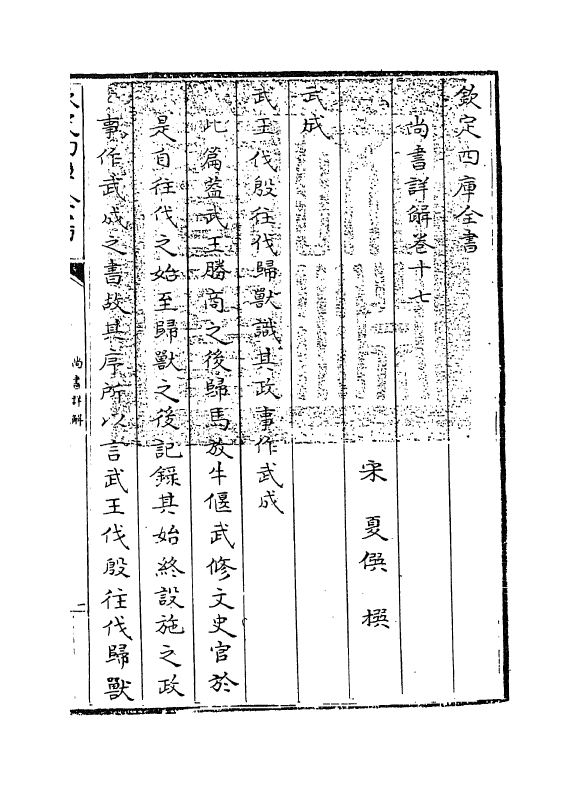 欽定四庫全書
尚書詳解卷十七
宋 夏僎 撰
武成
武王伐殷往伐歸獸識其政事作武成
此篇葢武王勝商之後歸馬放牛偃武修文史官於
是自往伐之始至歸獸之後記錄其始終設施之政
事作武成之書故其序所以言武王伐殷往伐歸獸
欽定四庫全書
尚書詳解